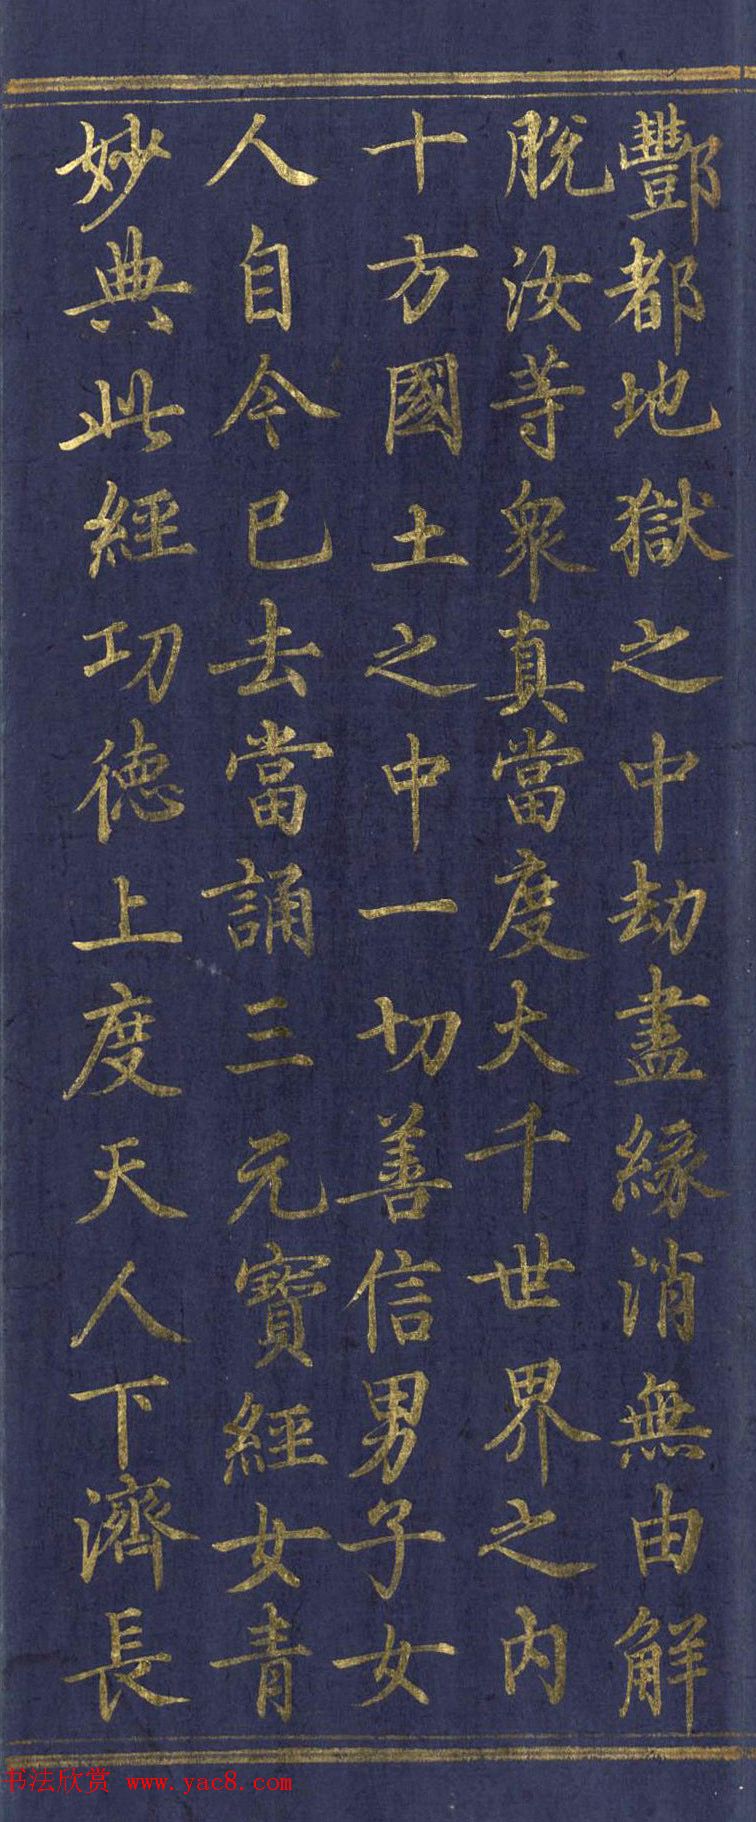 酆都地獄之中劫盡緣消無由解
脫汝等衆真當度大千世界之內
十方國土之中一切善信男子女
人自今已去當誦三元寶經女青
妙典此經功德上度天人下濟長
书法欣赏 www.yac8.com